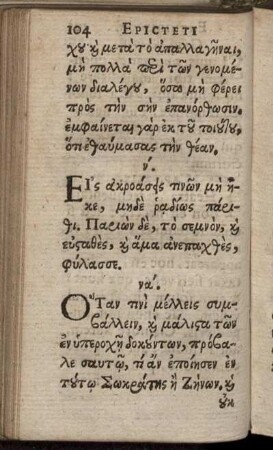 104 EPICTETI
χυ ϗ μετὰ τὸ ἀπαλλαγῆναι,
μὴ πολλὰ περὶ τῶν γενομέ-
νων διαλέγου, ὅσα μὴ φέρει
πρὸς τὴν σὴν ἐπανόρθωσιν.
ἐμφαίνεται γὰρ ἐκ τοῦ τοιούτου,
ὅτι ἐθαύμασας τὴν θέαν.
ν΄.
ΕΙς ἀκροάσεις τινῶν μὴ ἧ-
κε, μηδὲ ῥᾳδίως πάρι-
θι. Παριὼν δὲ, τὸ σεμνὸν, ϗ
εὐσταθὲς, ϗ ἅμα ἀνεπαχθὲς,
φύλασσε.
να΄.
ΟΤαν τινὶ μέλλεις συμ-
βάλλειν, ϗ μάλιστα τῶν
ἐν ὑπεροχῇ δοκούντων, πρόβα-
λε σαυτῷ, τί ἂν ἐποίησεν ἐν
τούτῳ Σωκράτης ἢ Ζήνων. ϗ
οὐκ